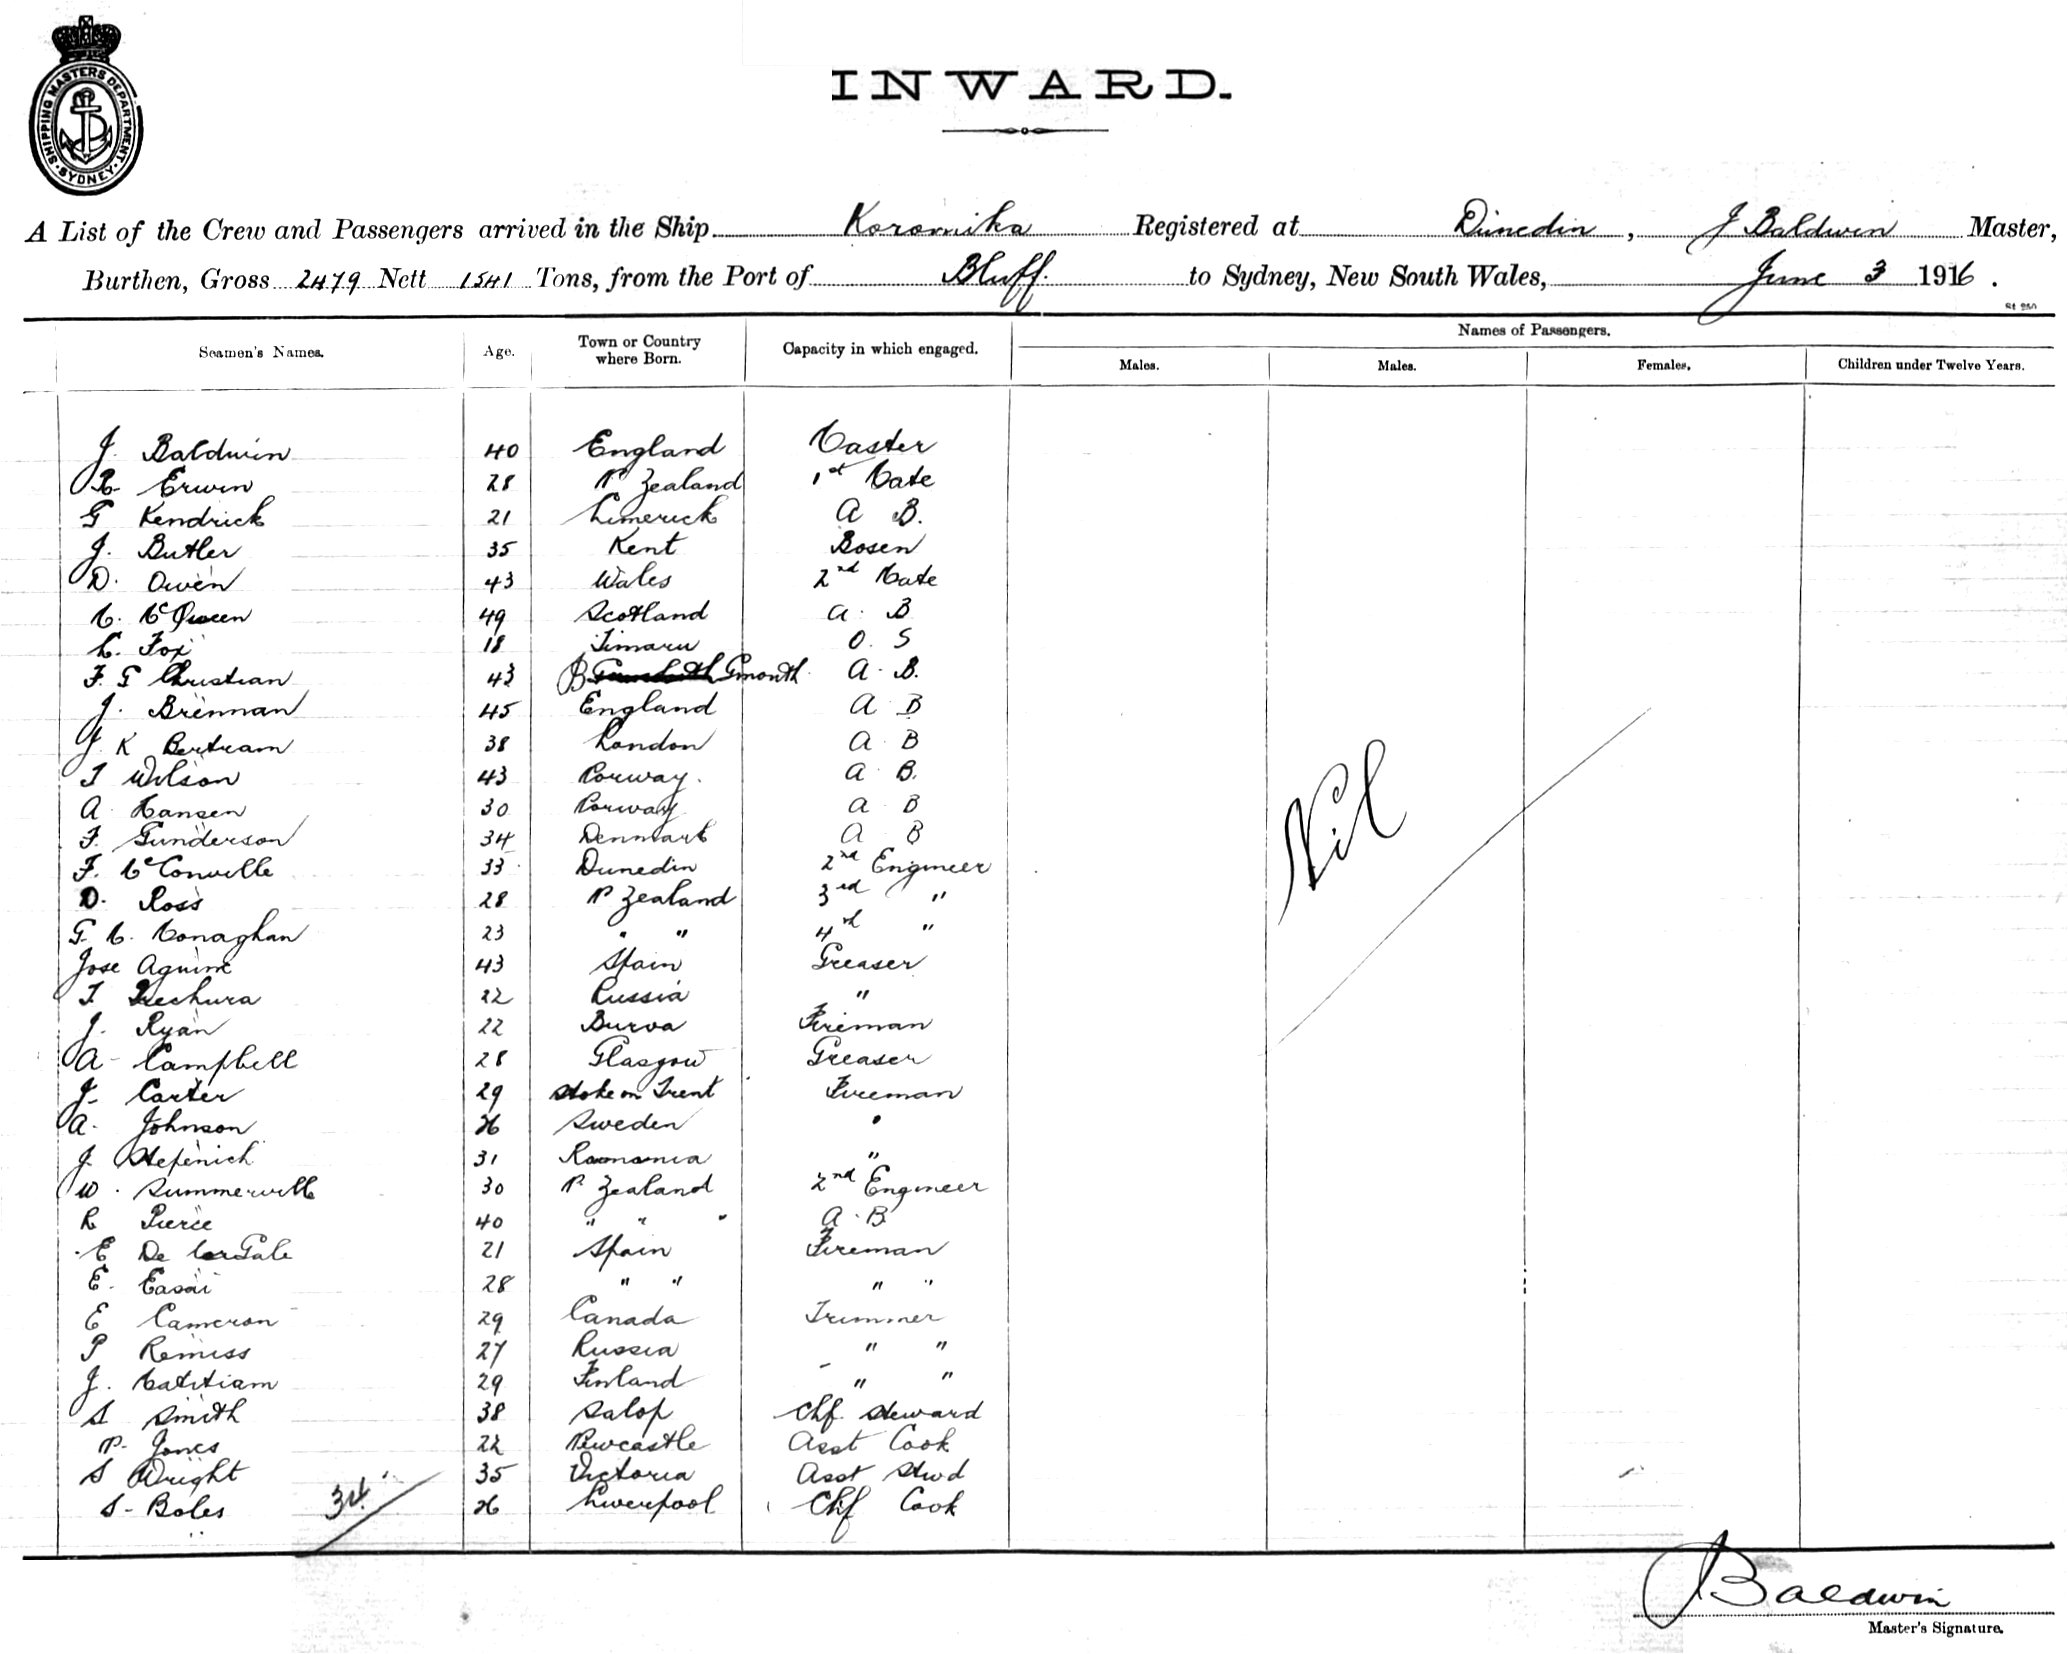 SHIPPING MASTERS DEPARTMENT. SYDNEY
INWARD.
A List of the Crew and Passengers arrived in the Ship Koromika Registered at Dunedin, J Baldwin Master,
Burthen, Gross 2479 Nett 1541 Tons, from the Port of Bluff. to Sydney, New South Wales, June 3 1916.
Seamen's Names. Age. Town or Country where Born. Capacity in which engaged. Names of Passengers.
Males. Males. Females. Children under Twelve Years.
J. Baldwin 40 England Master
R. Erwin 28 N Zealand 1st Mate
G Kendrick 21 Limerick A B.
J. Butler 35 Kent Bosen
D. Owen 43 Wales 2nd Mate
M. McQueen 49 Scotland A. B
L. Fox 18 Timaru O. S
F. G Christian 43 B Gmonth A. B.
J. Brennan 45 England A B
J. K Bertram 38 London A B
T Wilson 43 Norway. A B.
A Hansen 30 Norway A B
F. Gunderson 34 Denmark A B
F. McConville 33 Dunedin 2nd Engineer
D. Ross 28 N Zealand 3rd "
G. M. Monaghan 23 " " 4th "
Jose Aguirre 43 Spain Greaser
T 22 Russia "
J. Ryan 22 Fireman
A Campbell 28 Glasgow Greaser
J. Carter 29 Stoke on Trent Fireman
A. Johnson 26 Sweden "
J Stefenich 31 Roumania "
W. Summerville 30 N Zealand 2nd Engineer
R Pierce 40 " " " A. B
E De 21 Spain Fireman
E. 28 " " " "
E Cameron 29 Canada Trimmer
P Remiss 27 Russia " "
J. Mattiam 29 Finland " "
S Smith 38 Salop Chf. Steward
N. Jones 22 Newcastle Asst Cook
S Wright 35 Victoria Asst Stwd
S. Boles 26 Liverpool Chf Cook
34
Nil
J Baldwin
Master's Signature.